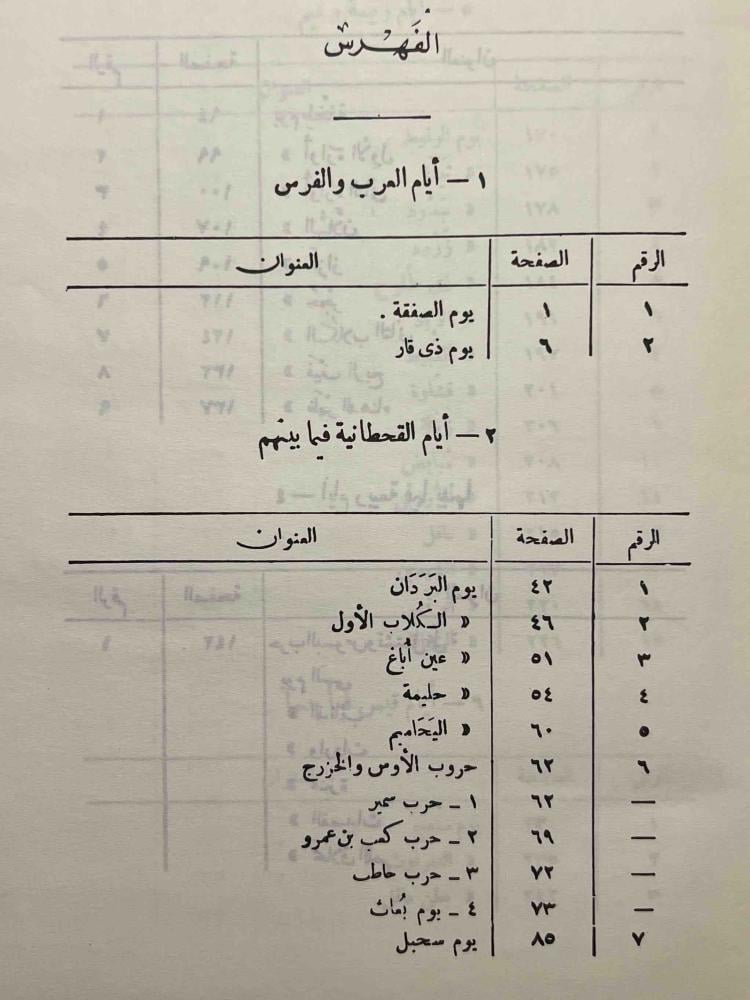 الفَهْرسْ
١ — أيام العرب والفرس
الرقم الصفحة العنوان
١ ١ يوم الصفقة .
٢ ٦ يوم ذى قار
٢ — أيام القحطانية فيما بينهم
الرقم الصفحة العنوان
١ ٤٢ يوم البَرَدَان
٢ ٤٦ « الكُلاب الأول
٣ ٥١ « عين أُباغ
٤ ٥٤ « حليمة
٥ ٦٠ « اليَحَاميم
٦ ٦٢ حروب الأوس والخزرج
— ٦٢ ١ ـ حرب سمير
— ٦٩ ٢ ـ حرب كعب بن عمرو
— ٧٢ ٣ ـ حرب حاطب
— ٧٣ ٤ ـ يوم بُعاث
٧ ٨٥ يوم سحبل